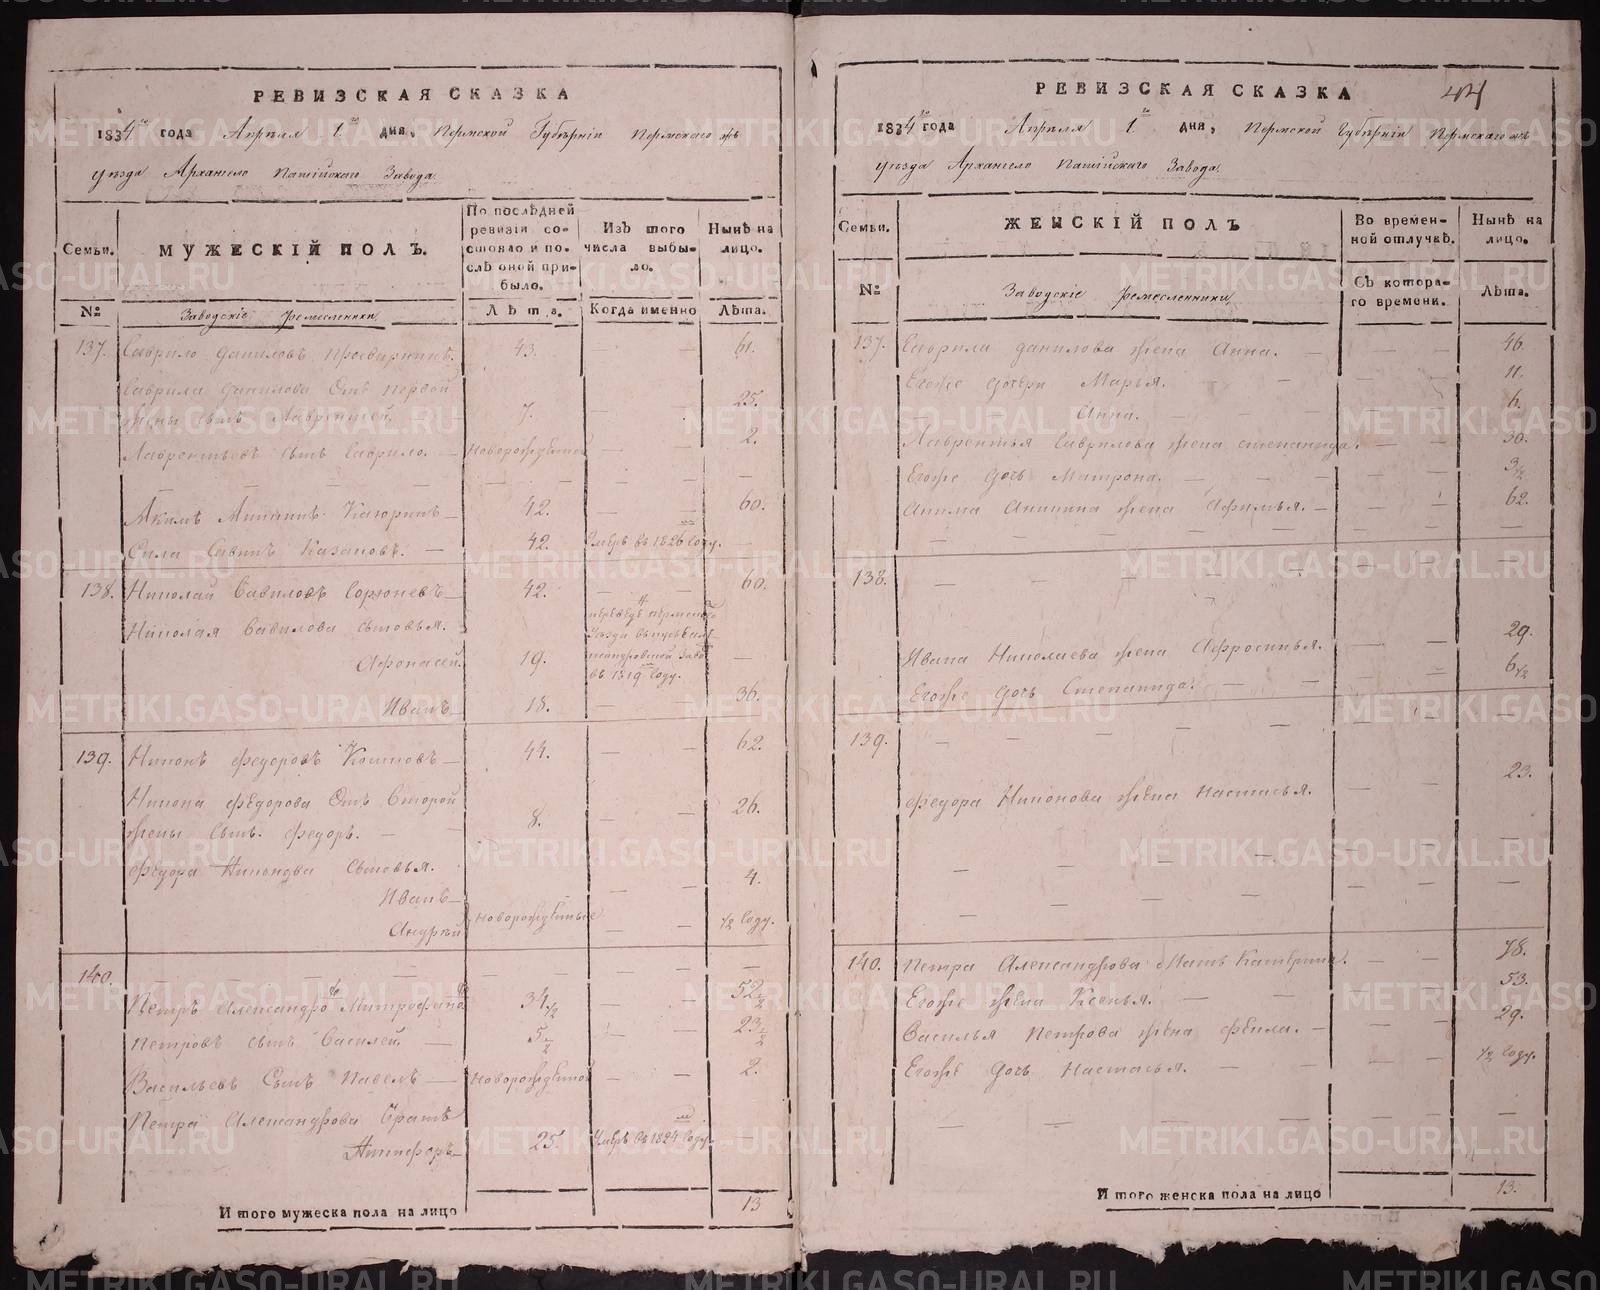 РЕВИЗСКАЯ СКАЗКА
1834го года Апреля 1го дня, Пермской Губернiи Пермскаго же
уезда Архангело Пашiйскаго Завода.
Семьи.
МУЖЕСКIЙ ПОЛЪ.
По послѣдней ревизiи состояло и послѣ оной прибыло.
Изъ того числа выбыло.
Нынѣ на лицо.
№
Заводскiе ремесленники
Лѣта.
Когда именно
Лѣта.
137. Гаврило Даниловъ 43. — — 61.
Гаврила Данилова Отъ первой
жены сынъ Лаврентей. 7. — 25.
Лаврентьевъ сынъ Гаврило. — Новорожденной — 2.
Акимъ 42. — 60.
Сила Савинъ Казаковъ. — 42. Умеръ въ 1826 году. —
138. Николай Вавиловъ 42. — 60.
Николая Вавилова сыновья.
Афонасей. 19. въ 1819 году. —
Иванъ 18. — 36.
139. Никонъ Федоровъ 44. — — 62.
Никона Федорова Отъ второй
жены сынъ. Федоръ. — 8. — — 26.
Федора Никонова сыновья.
Иванъ — — — 4.
Андрей Новорожденные — — 1/2 году.
140. — — —
Петръ Александровъ Митрофановъ 34 1/2 — — 52 1/2
Петровъ сынъ Василей. — 5 1/2 — 23 1/2
Васильевъ Сынъ Павелъ — Новорожденной — — 2.
Петра Александрова братъ
Никифоръ — 25. Умеръ въ 1824 году. —
И того мужеска пола на лицо 13
РЕВИЗСКАЯ СКАЗКА
1834го года Апреля 1го дня, Пермской Губернiи Пермскаго же
уезда Архангело Пашiйскаго Завода.
Семьи.
ЖЕНСКIЙ ПОЛЪ
Во временной отлучкѣ.
Нынѣ на лицо.
№
Заводскiе ремесленники
Съ котораго времени.
Лѣта.
137. Гаврила Данилова жена Анна. — — — 46.
Егоже дочери Марья. — — 11.
Анна. — — 6.
Лаврентья Гаврилова жена Степанида. — — 30.
Егоже дочь Матрона. — — — 3 1/2
Акима жена Афимья. — — 62.
138. — — —
Ивана Николаева жена Афросинья. — — 29.
Егоже дочь Степанида. — — 6 1/2
139. — — —
Федора Никонова жена Настасья. — — 23.
140. Петра Александрова Мать Катерина. — — 78.
Егоже жена Ксенья. — — 53.
Василья Петрова жена Фекла. — — 29.
Егоже дочь Настасья. — — 1/2 году.
И того женска пола на лицо 13.
METRIKI.GASO-URAL.RU